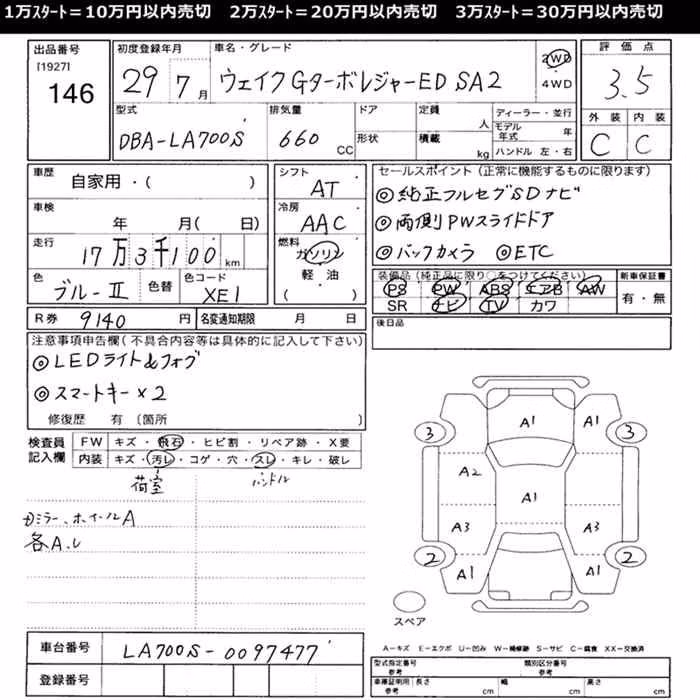 1万スタート＝10万円以内売切　2万スタート＝20万円以内売切　3万スタート＝30万円以内売切
出品番号 初度登録年月 車名・グレード 評価点
[1927] 146
29 7月 ウェイク GターボレジャーED SA2 2WD ・ 4WD 3.5
型式 排気量 ドア 定員 ディーラー・並行 外装 内装
DBA-LA700S 660 CC 形状 人 積載 kg モデル年式 年 ハンドル 左・右 C C
車歴 自家用・( ) シフト AT
セールスポイント（正常に機能するものに限ります）
◎純正フルセグSDナビ
車検 年 月( 日) 冷房 AAC
◎両側PWスライドドア
走行 17万3千100km 燃料 ガソリン 軽・油 ( )
◎バックカメラ ◎ETC
色 ブルーⅡ 色替 色コード XE1
装備品（純正品に限り○をつけてください） 新車保証書
PS PW ABS エアB AW 有・無
SR ナビ TV カワ
R券 9140円 名変通知期限 月 日
後日品
注意事項申告欄（不具合内容等は具体的に記入して下さい）
◎LEDライト&フォグ
◎スマートキー×2
修復歴 有 〔箇所
検査員記入欄 FW キズ・飛石・ヒビ割・リペア跡・X要
内装 キズ・汚レ・コゲ・穴・スレ・キレ・破レ
荷室 ハンドル
ミラー、ホイールA
各A.
A1 A1
3 3
A2 A1
A3 A3
2 2
A1 A1
スペア
車台番号 LA700S-0097477
A－キズ E－エクボ U－凹み W－補修跡 S－サビ C－腐食 XX－交換済
登録番号
型式指定番号 参考 類別区分番号 参考
車検証明用 参考 長さ cm 幅 cm 高さ cm